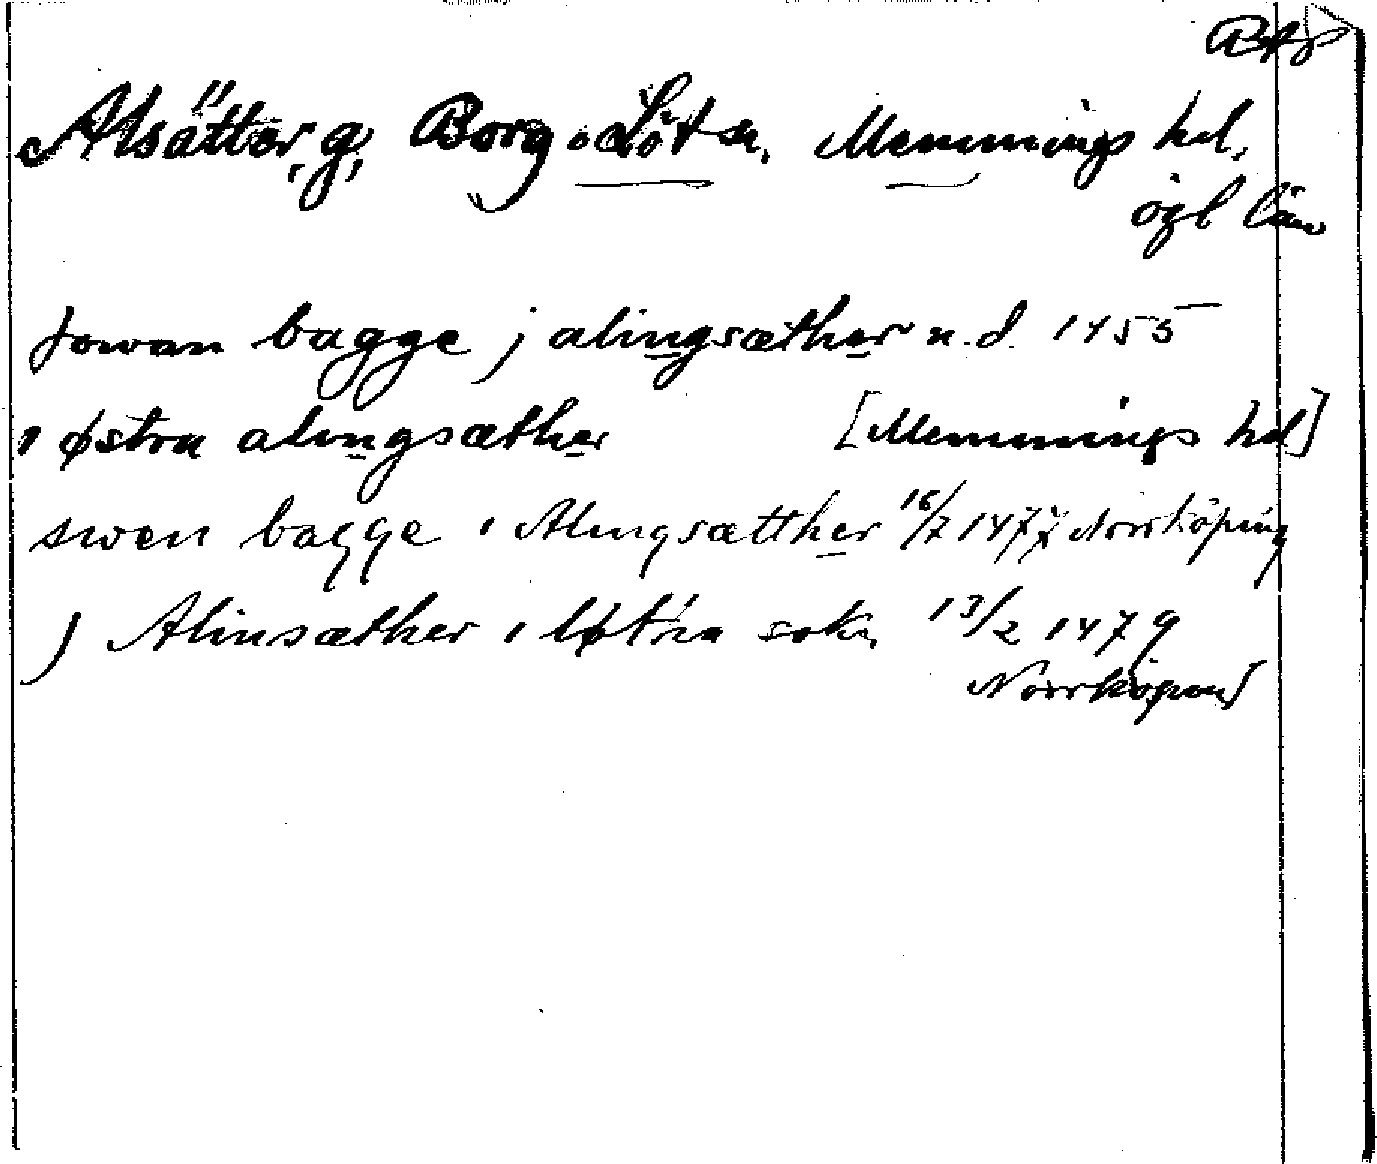 Alsätter, g, Borg o Löt sn, Memmings hd,
ögl län
Jowan bagge j alingsæther u.d. 1455
i østra alingsæther [Memmings hd]
swen bagge i Alingsætther 16/7 1477 Norrköping
j Alinsæther i løt'na sokn 13/2 1479
Norrköping